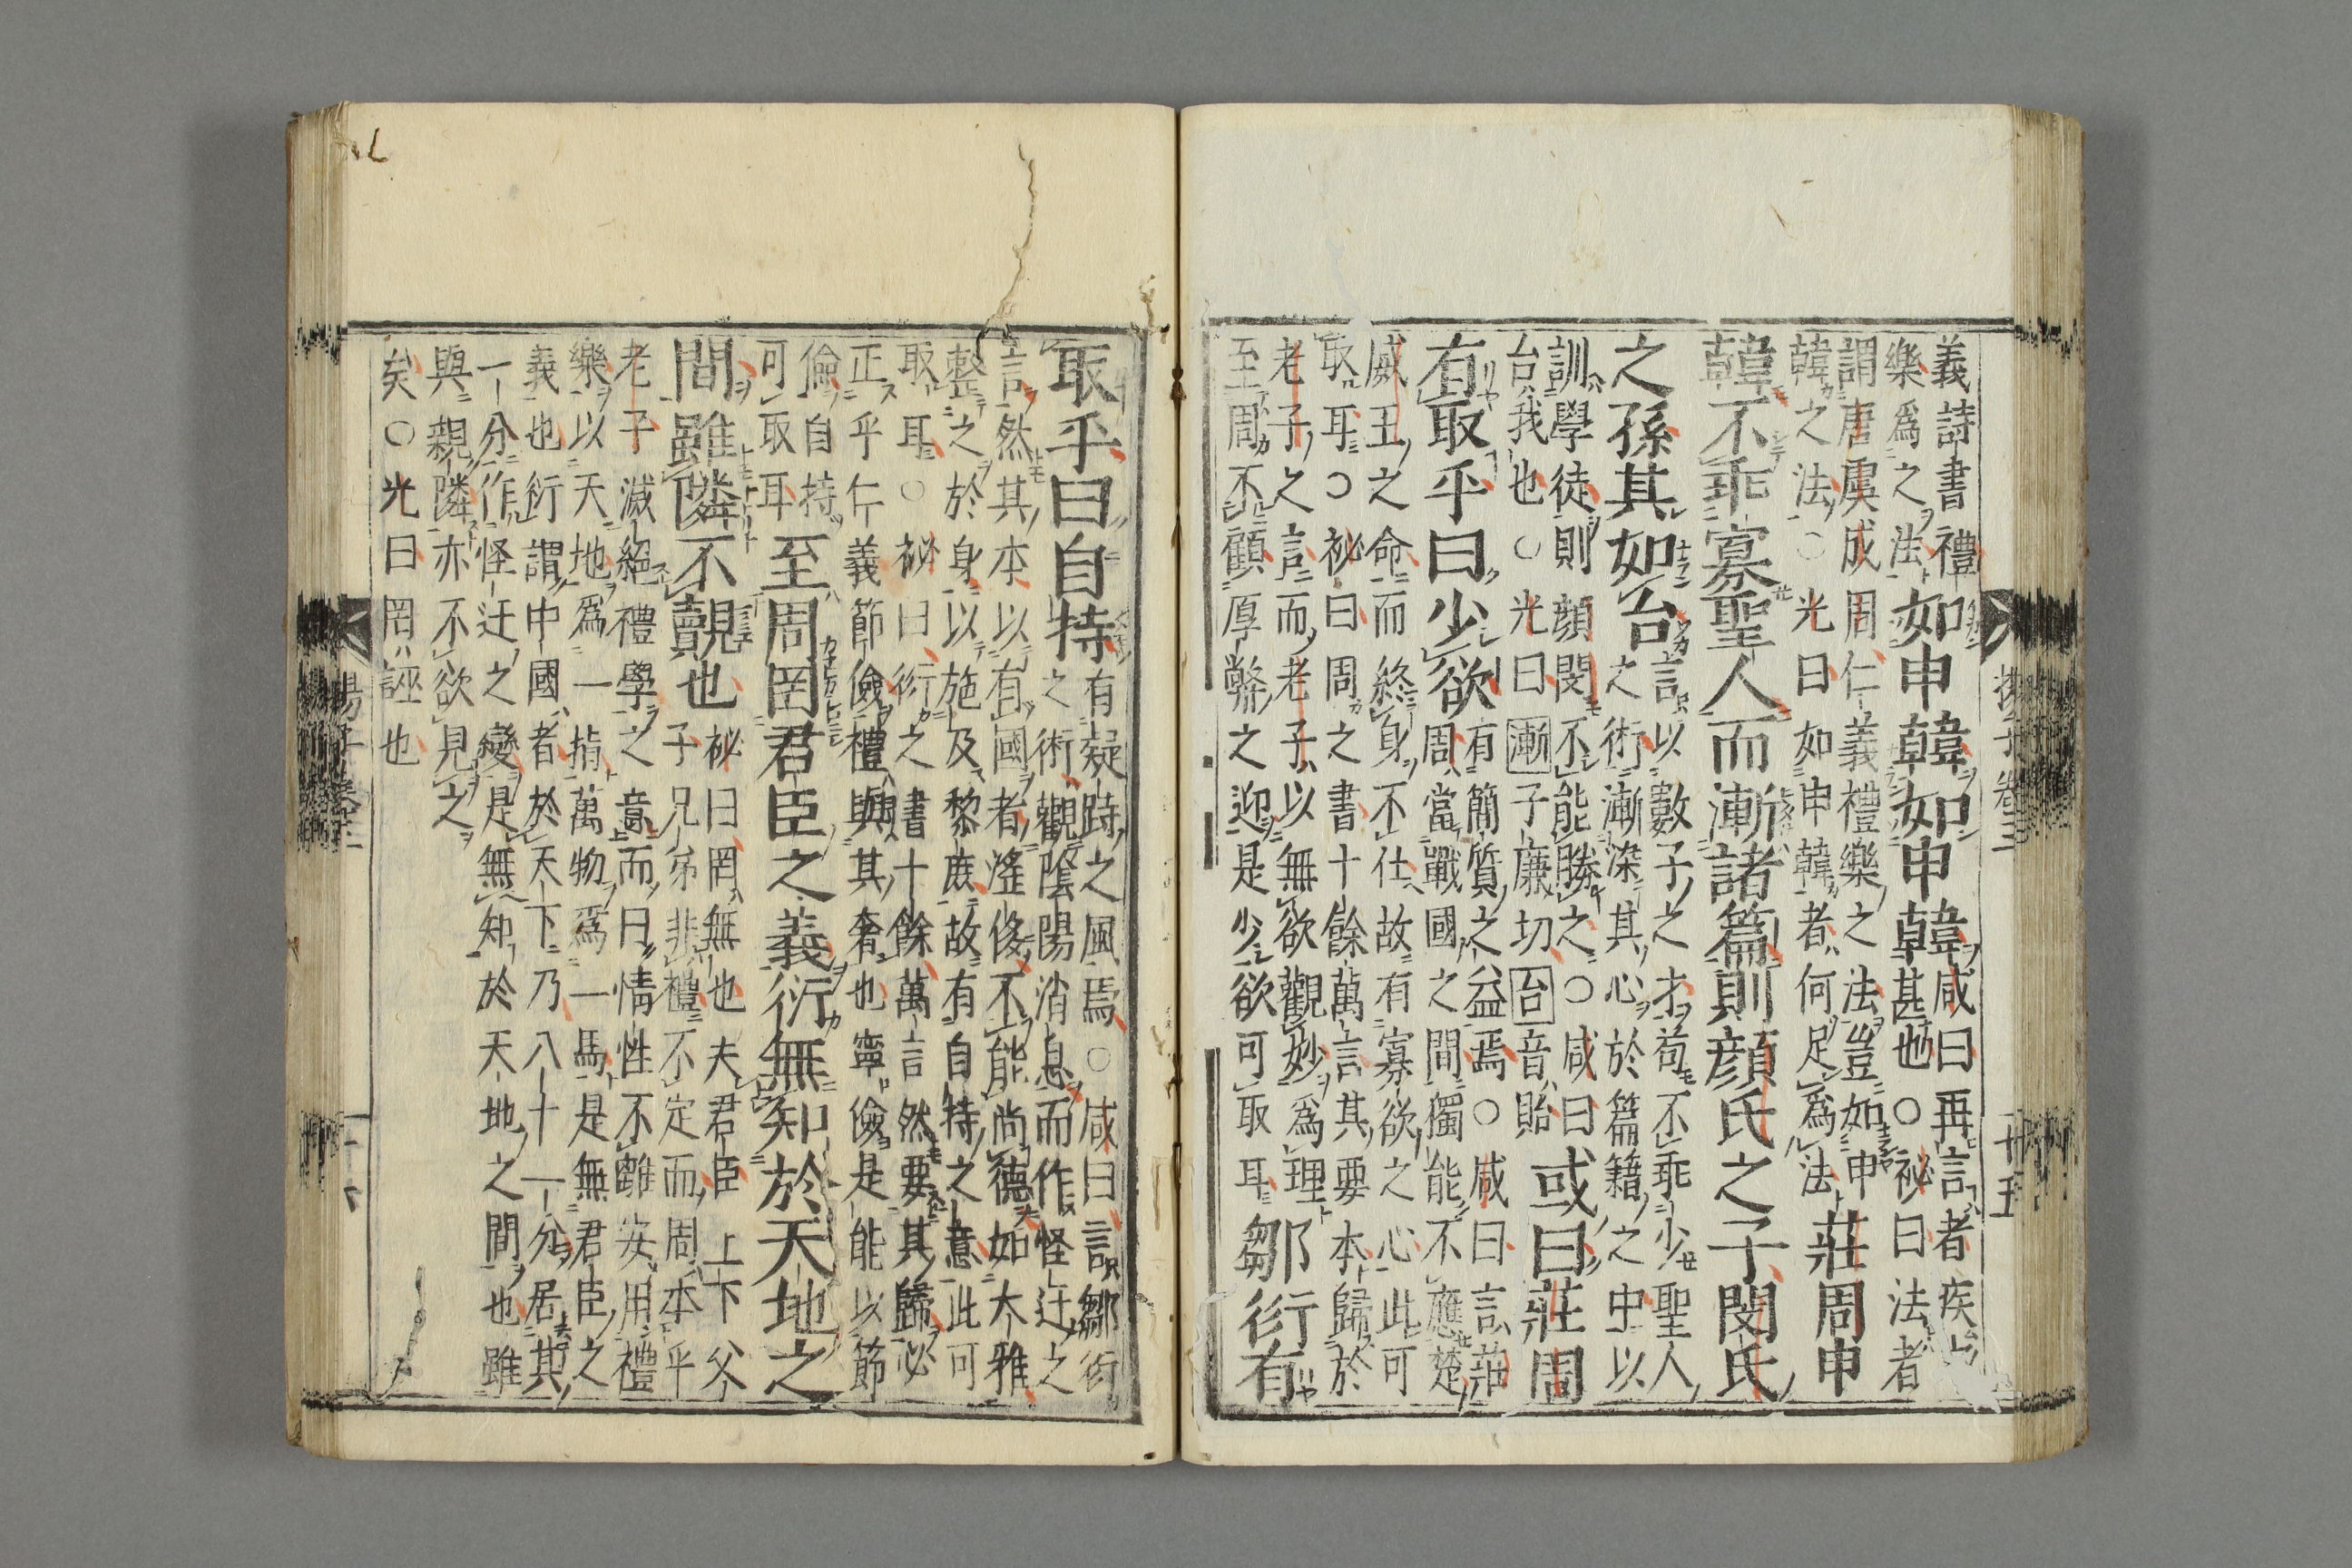 義詩書禮
樂爲之法如申韓如申韓咸曰再言者疾
甚也○祕曰法者
謂唐虞成周仁義禮樂之法豈如申
韓之法○光曰如申韓者何足爲法莊周申
韓不乖寡聖人而漸諸篇則顔氏之子閔氏
之孫其如台言以數子之才苟不乖少聖人
之術漸染其心於篇籍之中以
訓學徒則顔閔不能勝之○咸曰
台我也○光曰漸子廉切台音貽或曰莊周
有取乎曰少欲有簡質之益焉○咸曰言莊
周當戰國之間獨能不應楚
威王之命而終身不仕故有寡欲之心此可
取耳○祕曰周之書十餘萬言其要本歸於
老子之言而老子以無欲觀妙爲理
至周不顧厚幣之迎是少欲可取耳鄒衍有
取乎曰自持有疑跱之風焉○咸曰言鄒衍
之術觀陰陽消息而作怪迂之
言然其本以有國者滛侈不能尚德如大雅
整之於身以施及黎庶故有自持之意此可
取耳○祕曰衍之書十餘萬言然要其歸必
正乎仁義節儉禮與其奢也寧儉是能以節
儉自持
可取耳至周罔君臣之義衍無知於天地之
間雖隣不覿也祕曰罔無也夫君臣上下父
子兄弟非禮不定而周本乎
老子滅絕禮學之意而曰情性不離安用禮
樂以天地爲一指萬物爲一馬是無君臣之
義也衍謂中國者於天下乃八十一分居其
一分作怪迂之變是無知於天地之間也雖
與親隣亦不欲見之
矣○光曰罔誣也